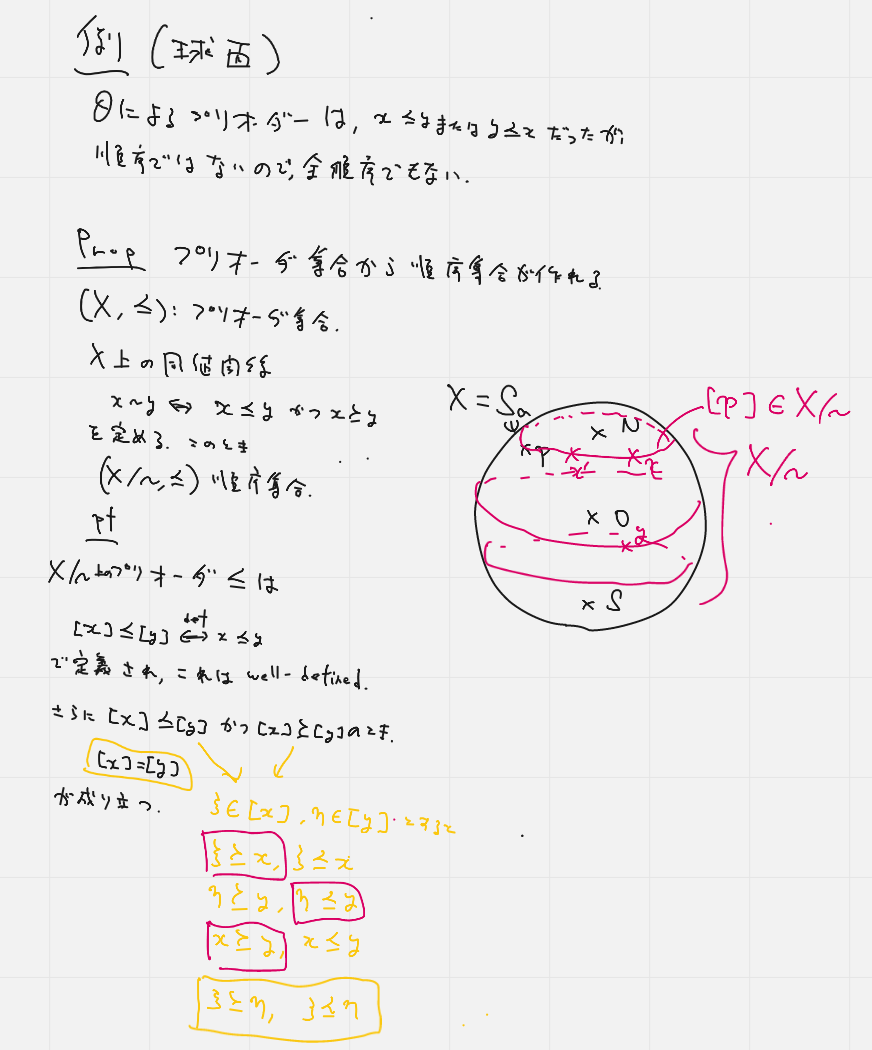 例 (球面)
θによるプリオーダーは, x≦yまたはy≦xだったが,
順序ではないので, 全順序でもない.
Prop プリオーダ集合から順序集合が作れる.
(X, ≦): プリオーダ集合.
X上の同値関係
x~y ⇔ x≦y かつ x≧y
を定める. このとき
(X/~, ≦) 順序集合.
pf
X/~上のプリオーダ ≦ は
[x]≦[y] def⇔ x≦y
で定義され, これは well-defined.
さらに [x]≦[y] かつ [x]≧[y] のとき.
[x]=[y]
が成り立つ.
ξ∈[x], η∈[y] とすると
ξ≧x, ξ≦x
η≧y, η≦y
x≧y, x≦y
ξ≧η, ξ≦η
X = S
[p] ∈ X/~
X/~
N
p
x'
x
O
y
S